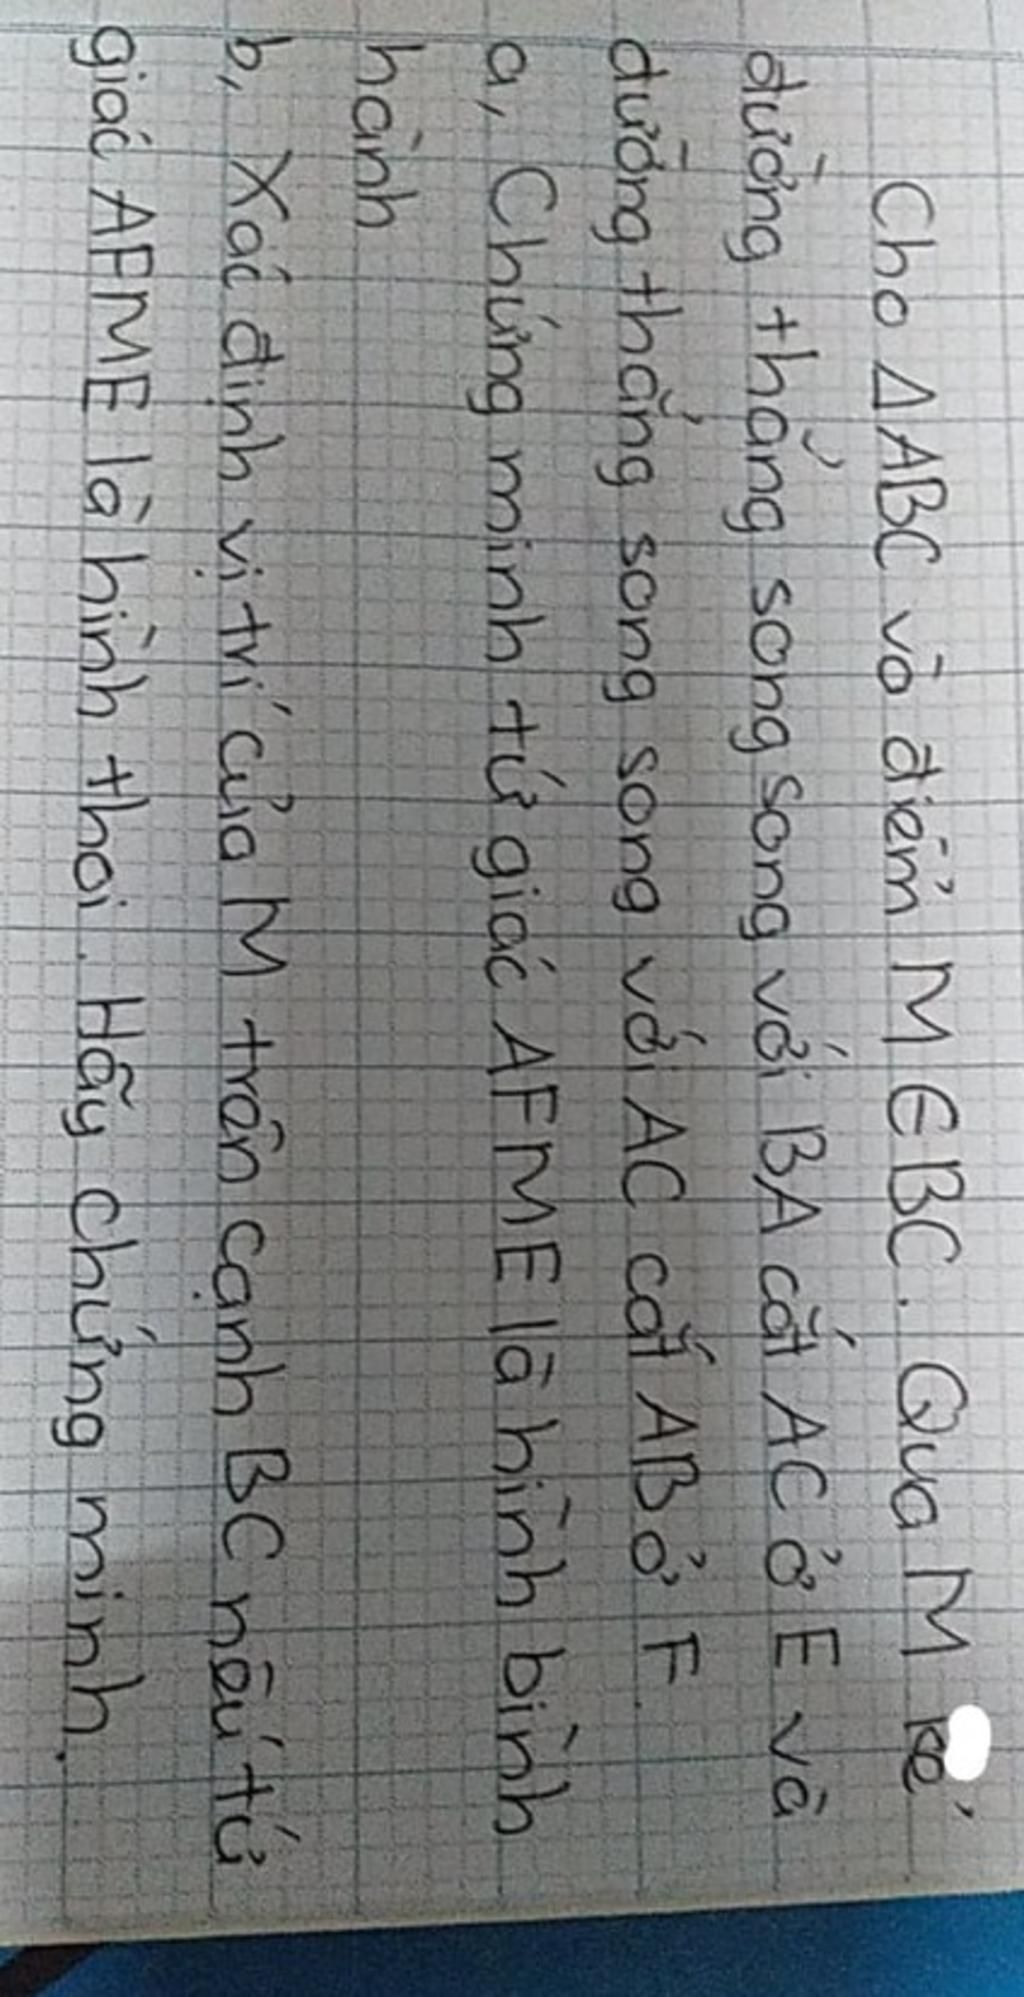 Cho Δ ABC và điểm M ∈ BC. Qua M kẻ
đường thẳng song song với BA cắt AC ở E và
đường thẳng song song với AC cắt AB ở F
a, Chứng minh tứ giác AFME là hình bình
hành
b, Xác định vị trí của M trên cạnh BC nếu tứ
giác AFME là hình thoi. Hãy chứng minh.